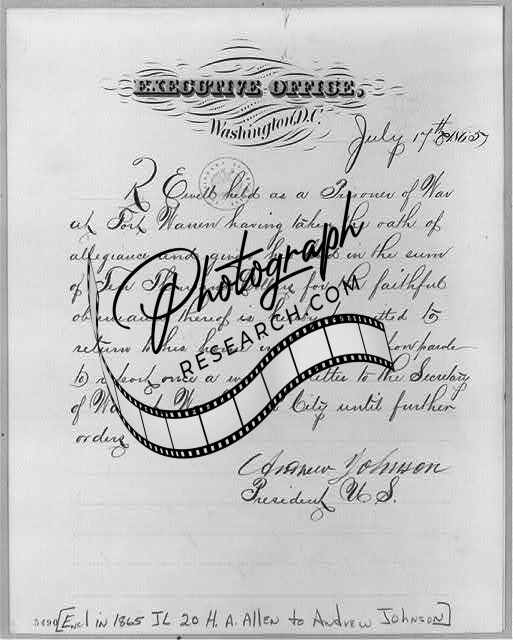 EXECUTIVE OFFICE,
Washington, D.C.
July 17th 1865
R S Ewell held as a Prisoner of War
at Fort Warren having taken the oath of
allegiance and in the sum
of Ten for the faithful
thereof is to
return to his home on parole
to report once a letter to the Secretary
of City until further
orders
Andrew Johnson
President U.S.
Photograph
RESEARCH.COM
[Encl in 1865 JL 20 H. A. Allen to Andrew Johnson]